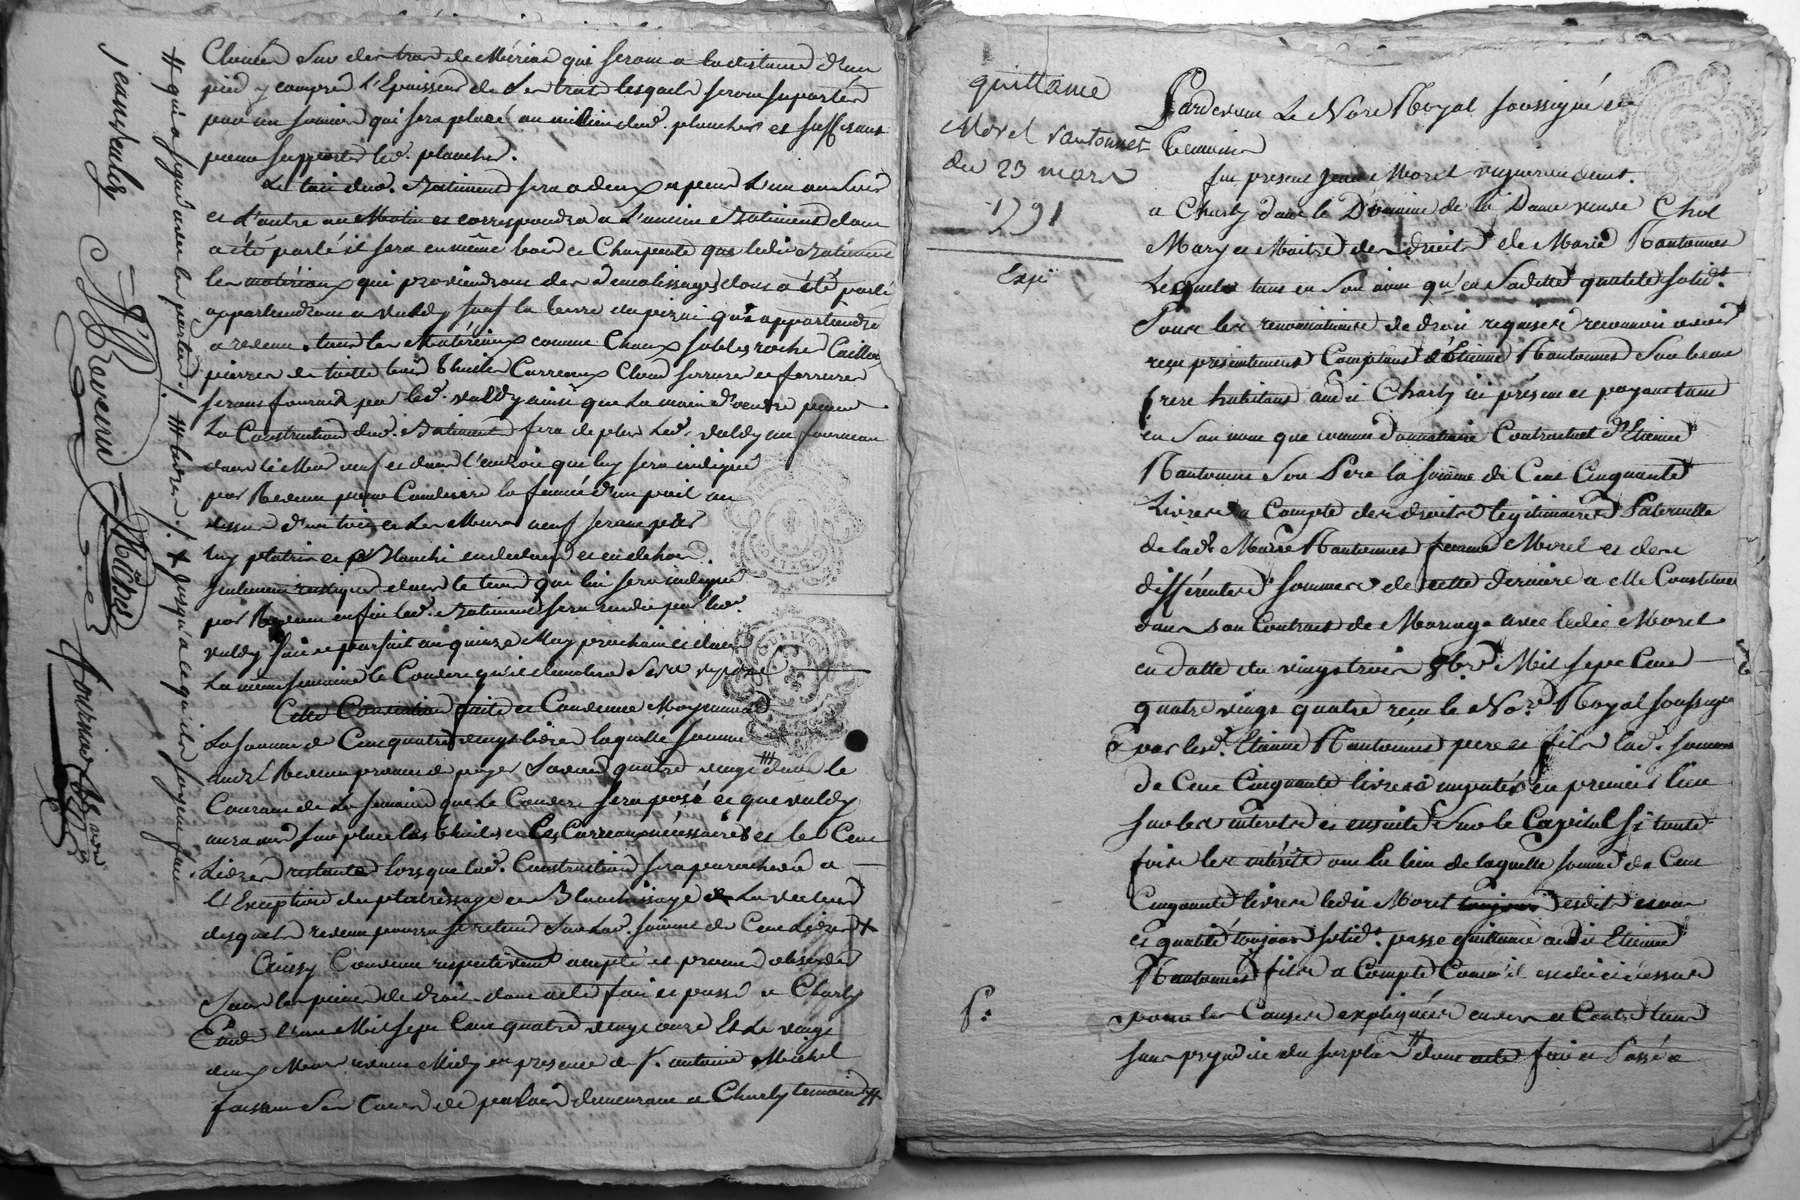 Clouées sur des tras de Mérian qui seront a la distance d'un
pied y compris l'Epaisseur de Ses trait lesquels seront suportés
par un somier qui sera placé au milieu dud. plancher et suffisant
pour supporter led. plancher.
Le toit dud. Batiment sera a deux a pend L'un au Soir
et L'autre au Matin et correspondra a L'ancien Batiment dont
a été parlé il sera en même bois et Charpente que ledit Batiment
les matériaux qui proviendront des démolissages dont a été parlé
appartiendront a Valdy sauf la terre du pizai qui appartiendra
a revenu. tous les Matériaux comme Chaux sables roche Cailloux
pierres de taille bois thuiles Carreaux Cloud serrures et ferrures
seront fournis par led. Valdy ainsi que La main d'oeuvre pour
La Construction dud. Batiment fera de plus Led. Valdy un fourneau
dans le Mur neuf et dans l'endroit que luy sera indiqué
par Revenu pour Conduire la fumée d'un poil au
dessus d'un toit, et Les Murs neuf seront par
luy platris et Blanchi en dedans et en dehors
seulement rustiqué dans le tems qui lui sera indiqué
par Revenu enfin led. Batiment sera rendu par led.
Valdy fait et parfait au quinze May prochain et dans
La même semaine le Couvert qu'il démolira Sera reposé
Cette Convention faite et Convenue Moyennant
La somme de Cent quatre vingt livres laquelle somme
led. Revenu promet de payer Savoir quatre vingt ### dans le
Courant de La semaine que Le Couvert sera posé et que Valdy
aura mis sur place les thuiles et les Carreaux nécessaires et les Cent
Livres restante lorsque lad. Construction sera parachevée a
l'Exception du platrissage et Blanchissage de La valeur
desquels revenu pourra se retenir Sur Lad. somme de Cent Livres X
Ainsy Convenu respectivement accepté et promis observer
Sous les peines de droit dont acte fait et passé a Charly
Etude L'an Mil sept Cent quatre vingt onze Et Le vingt
deux Mars avant Midy en presence de Sr. antoine Michel
faisant Ses Cours de pratique demeurant a Charly temoin #
# qui a signé avec les parties. / ### livres. / X jusqu'a ce qu'ils soyent fait.
jean valdy
A Revenu
Michel
fournier
quittance
Morel Nantonnet
du 23 mars
1791
Expé
Pardevant Le Nore Royal soussigné et
temoins
fut present Jean Morel vigneron demt.
a Charly dans le Domaine de la Dame veuve Chol
Mary et Maitre des droits de Marie Nantonnet
Lesquels tant en Son nom qu'en Sadite qualité solidt.
Sous les renonciations de droit requises reconnoit avoir
reçu presentement Comptant d'Etienne Nantonnet Son beau
frere habitant audit Charly ici présent et payant tant
en Son nom que comme donataire Contractuel d'Etienne
Nantonnet Son Pere la somme de Cent Cinquante
Livres a Compte des droits légitimaires Paternelle
de lade Marie Nantonnet femme Morel et des
différentes sommes de cette derniere a Elle Constituée
dans son Contrat de Mariage avec ledit Morel
en datte du vingt trois 8bre Mil sept Cent
quatre vingt quatre reçu le Nore Royal soussigné
par lesd. Etienne Nantonnet pere et fils lad. somme
de Cent Cinquante livres imputés en premier lieu
sur les interets et ensuite sur le Capital si toute
fois les intérêts ont lieu de laquelle somme de Cent
Cinquante livres ledit Morel toujours esdits noms
et qualité toujours solidt. passe quittance audit Etienne
Nantonnet fils a Compte Comme il est dit ci dessus
pour les Causes expliquées envers et Contre tous
sans prejudice du surplus # dont acte fait et Passé a